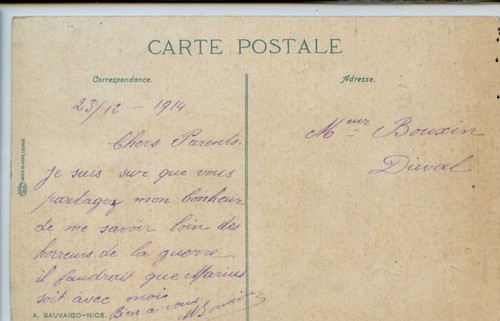 CARTE POSTALE
Correspondance.
Adresse.
23/12 - 1914
Chers Parents.
Je suis sur que vous
partagez mon bonheur
de me savoir loin des
horreurs de la guerre
il faudrait que Marius
soit avec mois
Bien a vous
A. SAUVAIGO-NICE.
Meur Bouxin
Dieval